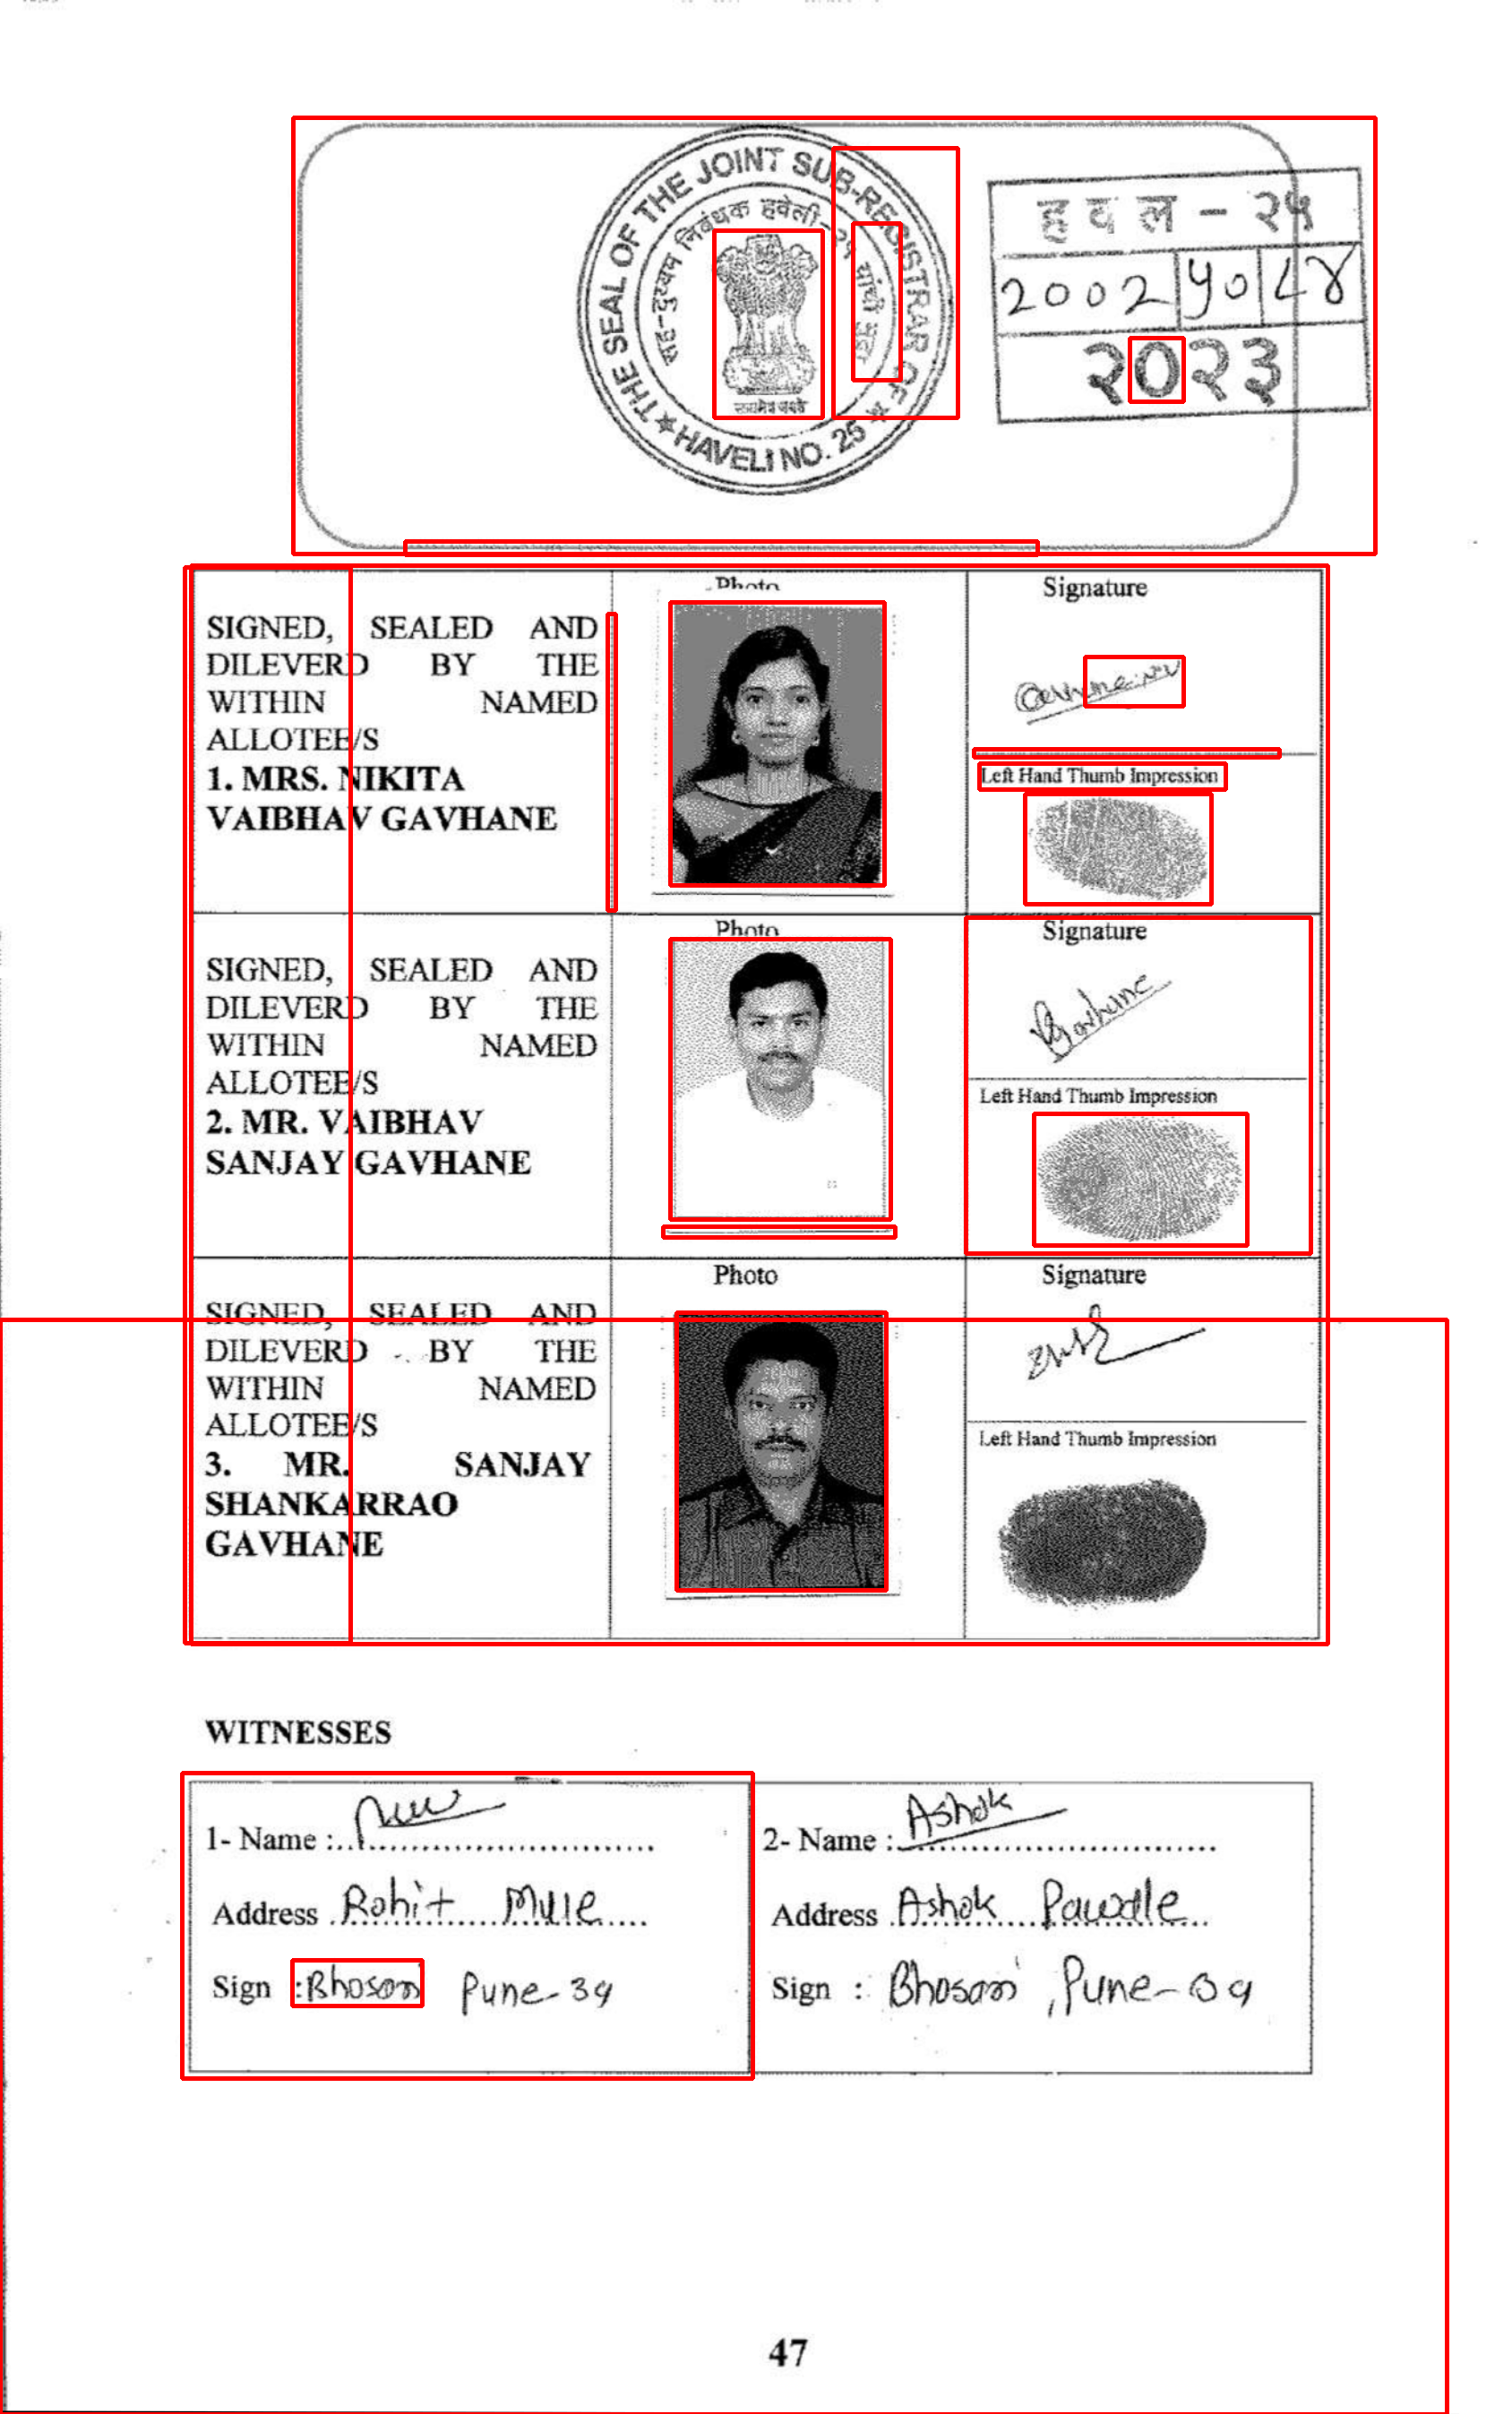 THE SEAL OF THE JOINT SUB-REGISTRAR OF
HAVELI NO. 25
सह-दुय्यम निबंधक हवेली-२५ यांची मुद्रा
सत्यमेव जयते
हवल - २५
2002 ५० ८४
२०२३
Photo
Signature
SIGNED, SEALED AND
DILEVERD BY THE
WITHIN NAMED
ALLOTEE/S
1. MRS. NIKITA
VAIBHAV GAVHANE
Left Hand Thumb Impression
Photo
Signature
SIGNED, SEALED AND
DILEVERD BY THE
WITHIN NAMED
ALLOTEE/S
2. MR. VAIBHAV
SANJAY GAVHANE
Gavhane
Left Hand Thumb Impression
Photo
Signature
SIGNED, SEALED AND
DILEVERD BY THE
WITHIN NAMED
ALLOTEE/S
3. MR. SANJAY
SHANKARRAO
GAVHANE
Left Hand Thumb Impression
WITNESSES
1- Name :
Address Rohit Mule
Sign : Bhosari Pune-39
2- Name : Ashok
Address Ashok Pawdle
Sign : Bhosari, Pune-39
47